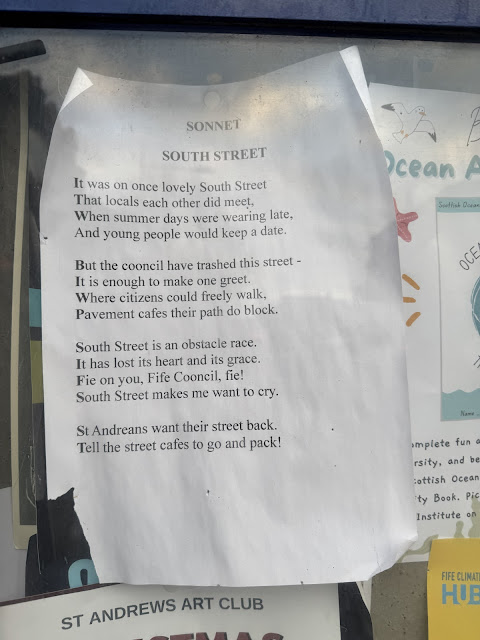 SONNET
SOUTH STREET
It was on once lovely South Street
That locals each other did meet,
When summer days were wearing late,
And young people would keep a date.
But the cooncil have trashed this street -
It is enough to make one greet.
Where citizens could freely walk,
Pavement cafes their path do block.
South Street is an obstacle race.
It has lost its heart and its grace.
Fie on you, Fife Cooncil, fie!
South Street makes me want to cry.
St Andreans want their street back.
Tell the street cafes to go and pack!
Ocean A
Scottish Ocean
OCEA
Name
mplete fun a
rsity, and be
cottish Ocean
ty Book. Pic
Institute on
FIFE CLIMATE
HUB
ST ANDREWS ART CLUB